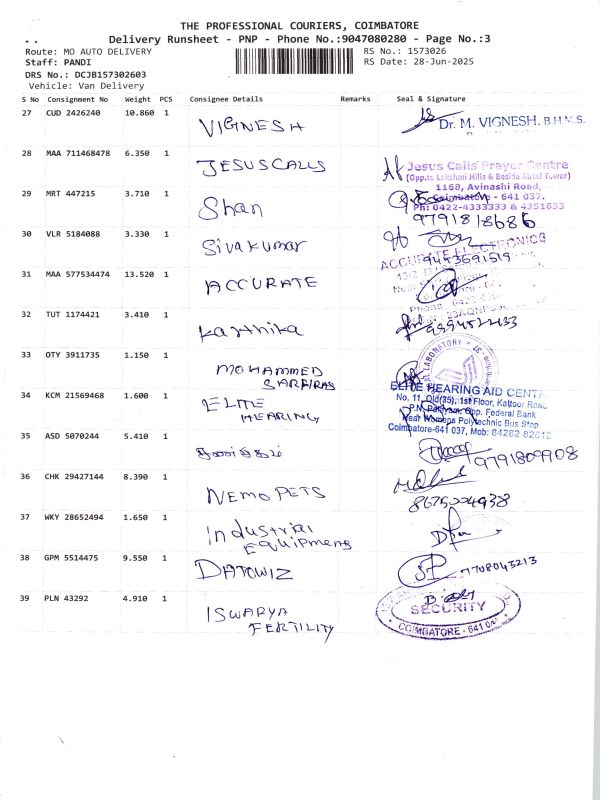 THE PROFESSIONAL COURIERS, COIMBATORE
Delivery Runsheet - PNP - Phone No.:9047080280 - Page No.:3
Route: MO AUTO DELIVERY RS No.: 1573026
Staff: PANDI RS Date: 28-Jun-2025
DRS No.: DCJB157302603
Vehicle: Van Delivery
S No Consignment No Weight PCS Consignee Details Remarks Seal & Signature
27 CUD 2426240 10.860 1 VIGNESH Dr. M. VIGNESH. B.H.M.S.
28 MAA 711468478 6.350 1 JESUS CALLS Jesus Calls Prayer Centre
(Opp.to Lakshmi Mills & Beside Abtel Tower)
1168, Avinashi Road,
Coimbatore - 641 037.
Ph: 0422-4333333 & 4351633
29 MRT 447215 3.710 1 Shan 9791818686
30 VLR 5184088 3.330 1 Sivakumar 9443691519
31 MAA 577534474 13.520 1 ACCURATE ACCURATE ELECTRONICS
32 TUT 1174421 3.410 1 Karthika
33 OTY 3911735 1.150 1 MOHAMMED SARFIRAS LABORATORY
34 KCM 21569468 1.600 1 ELITE HEARING ELITE HEARING AID CENT
No. 11, Old(35), 1st Floor, Kattoor Road,
P.N. Palayam, Opp. Federal Bank
Near Womens Polytechnic Bus Stop
Coimbatore-641 037, Mob:
35 ASD 5070244 5.410 1 9791809908
36 CHK 29427144 8.390 1 NEMO PETS 8675004938
37 WKY 28652494 1.650 1 Industrial EQUIPMENT
38 GPM 5514475 9.550 1 DATOWIZ 7708043213
39 PLN 43292 4.910 1 ISWARYA FERTILITY SECURITY
COIMBATORE - 641